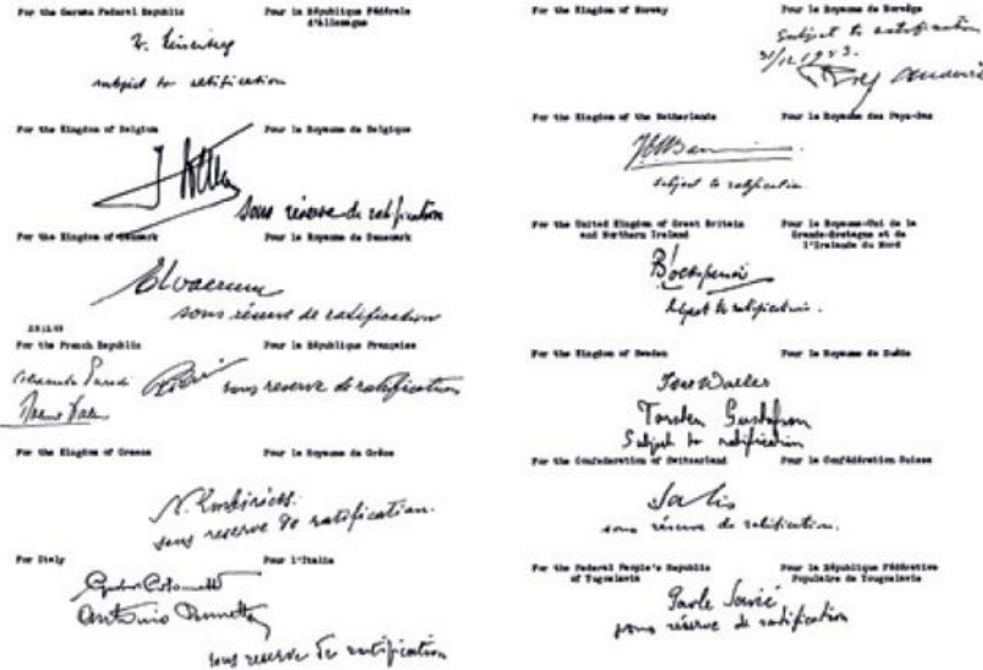 For the German Federal Republic
Pour la République Fédérale
d'Allemagne
W. Heisenberg
subject to ratification
For the Kingdom of Belgium
Pour le Royaume de Belgique
sous réserve de ratification
For the Kingdom of Denmark
Pour le Royaume de Danemark
sous réserve de ratification
For the French Republic
Pour la République Française
Alexandre Parodi
sous reserve de ratification
For the Kingdom of Greece
Pour le Royaume de Grèce
sous reserve de ratification.
For Italy
Pour l'Italie
Antonio
sous reserve de ratification
For the Kingdom of Norway
Pour le Royaume de Norvège
Subject to ratification
31/12 1953.
For the Kingdom of the Netherlands
Pour le Royaume des Pays-Bas
subject to ratification
For the United Kingdom of Great Britain
and Northern Ireland
Pour le Royaume-Uni de la
Grande-Bretagne et de
l'Irelande du Nord
Subject to ratification.
For the Kingdom of Sweden
Pour le Royaume de Suède
Ivar Waller
Torsten Gustafson
Subject to ratification
For the Confederation of Switzerland
Pour la Confédération Suisse
Salis
sous réserve de ratification.
For the Federal People's Republic
of Yugoslavia
Pour la République Fédérative
Populaire de Yougoslavie
Pavle Savić
sous réserve de ratification